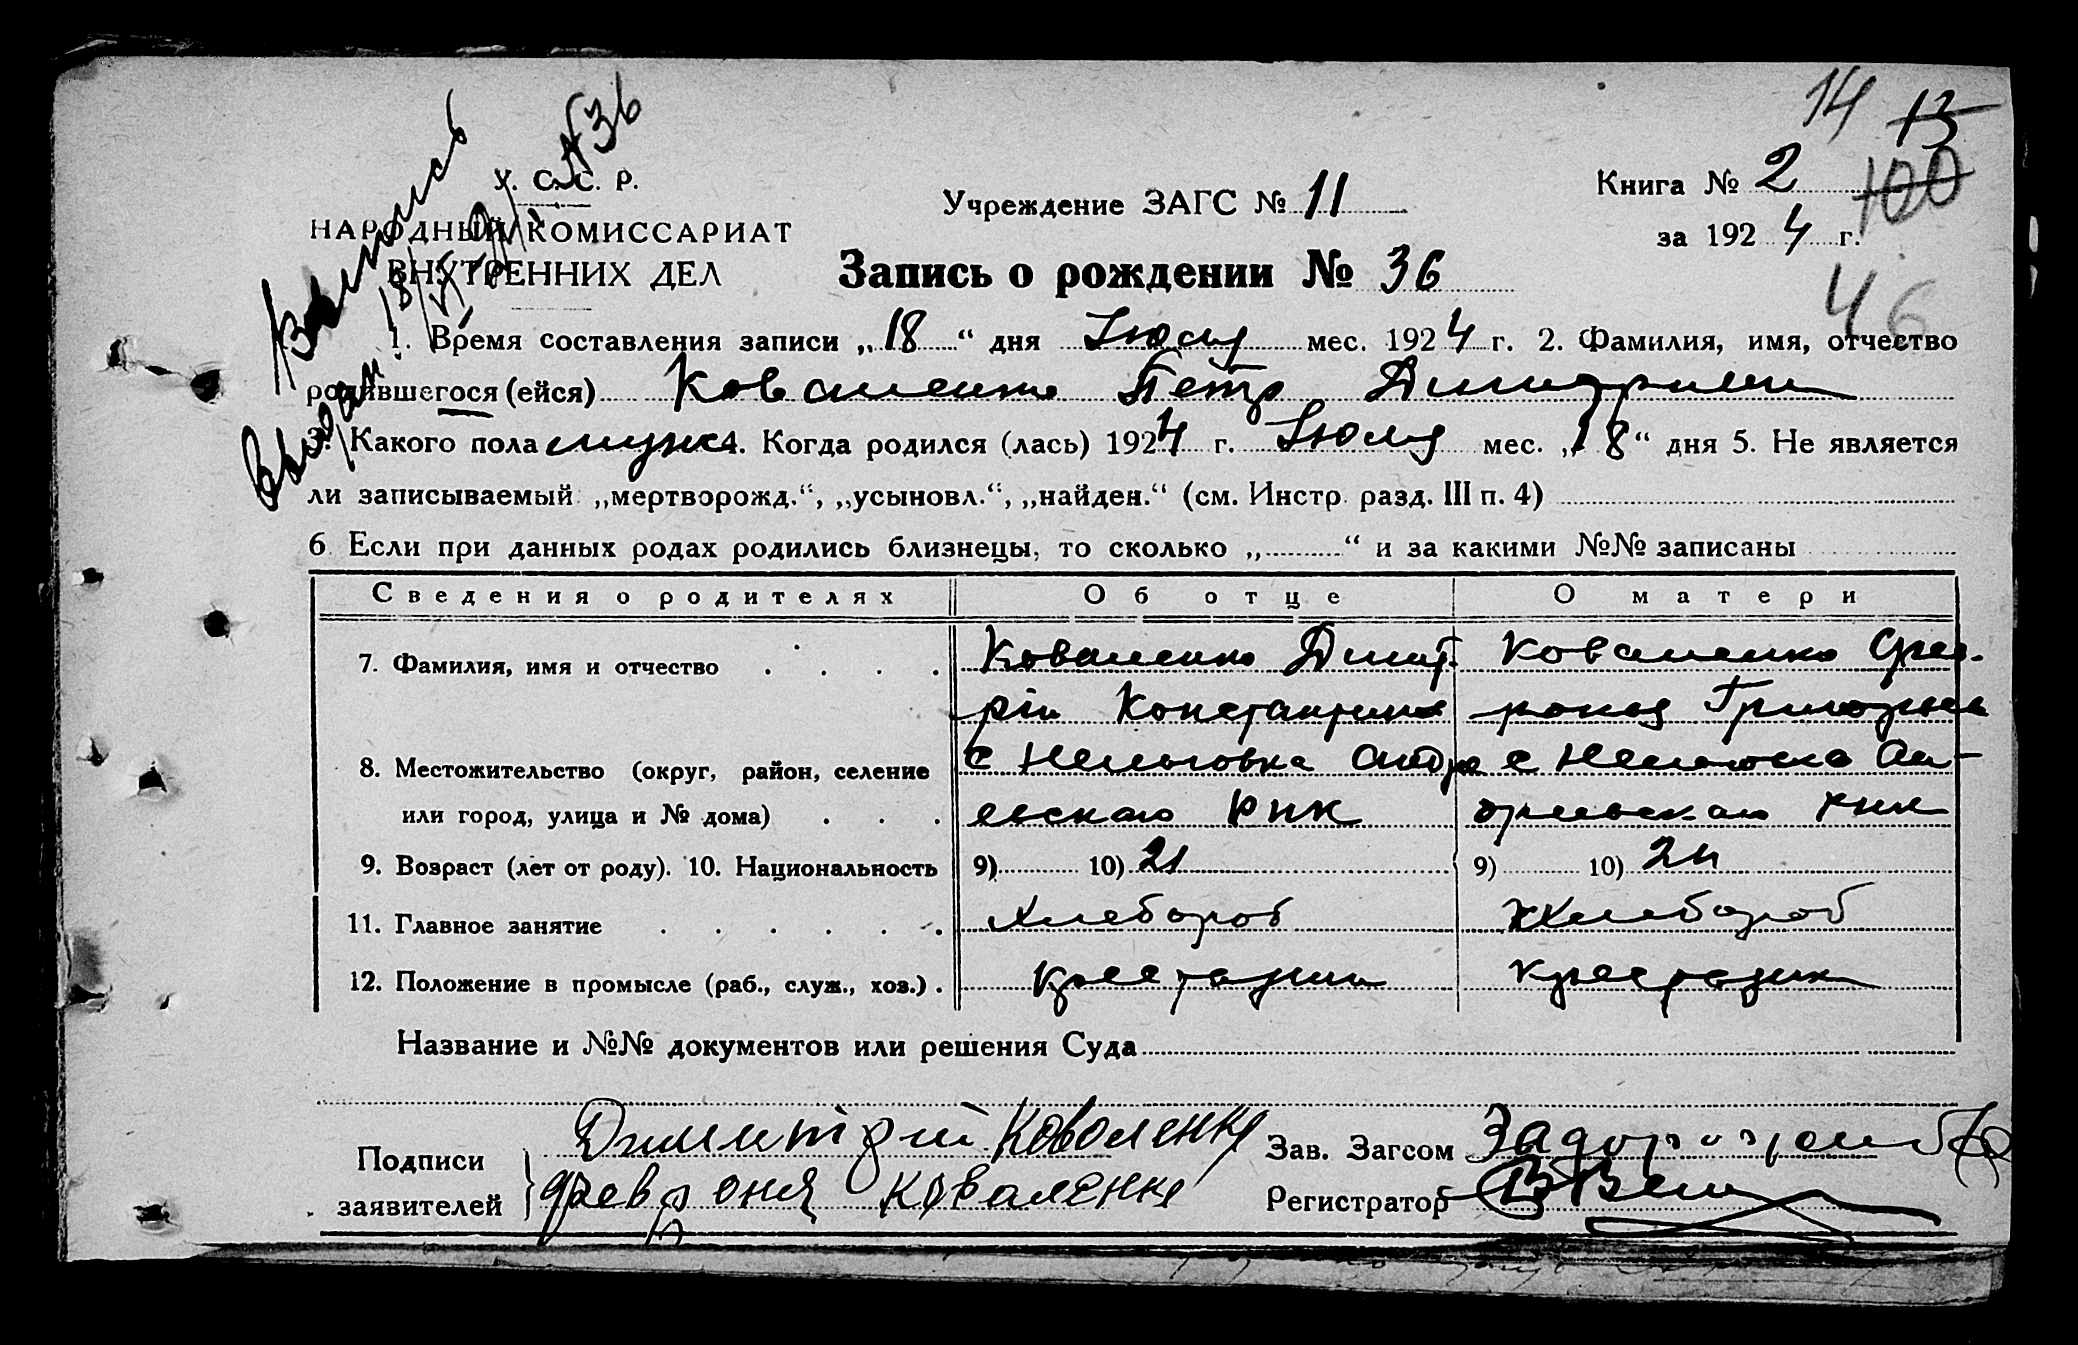 14 13
У. С. С. Р.
НАРОДНЫЙ КОМИССАРИАТ
ВНУТРЕННИХ ДЕЛ
Выпись
Выдан
№36
Учреждение ЗАГС № 11
Книга № 2
100
за 1924 г.
46
Запись о рождении № 36
1. Время составления записи „18“ дня Июля мес. 1924 г. 2. Фамилия, имя, отчество
родившегося (ейся) Коваленко Петр
3. Какого пола муж 4. Когда родился (лась) 1924 г. Июля мес. „18“ дня 5. Не является
ли записываемый „мертворожд.“, „усыновл.“, „найден.“ (см. Инстр. разд. III п. 4)
6 Если при данных родах родились близнецы, то сколько „ “ и за какими №№ записаны
Сведения о родителях Об отце О матери
7. Фамилия, имя и отчество Коваленко Дмит- Коваленко
рій Григорьев
8. Местожительство (округ, район, селение с Нельговка Андре с Нельговка Ан-
или город, улица и № дома) евскаго РИК дреевскаго РИК
9. Возраст (лет от роду). 10. Национальность 9) 10) 21 9) 10) 24
11. Главное занятие Хлебороб Хлебороб
12. Положение в промысле (раб., служ., хоз.)
Название и №№ документов или решения Суда
Подписи Димитрий Коваленко Зав. Загсом
заявителей феврония коваленко Регистратор